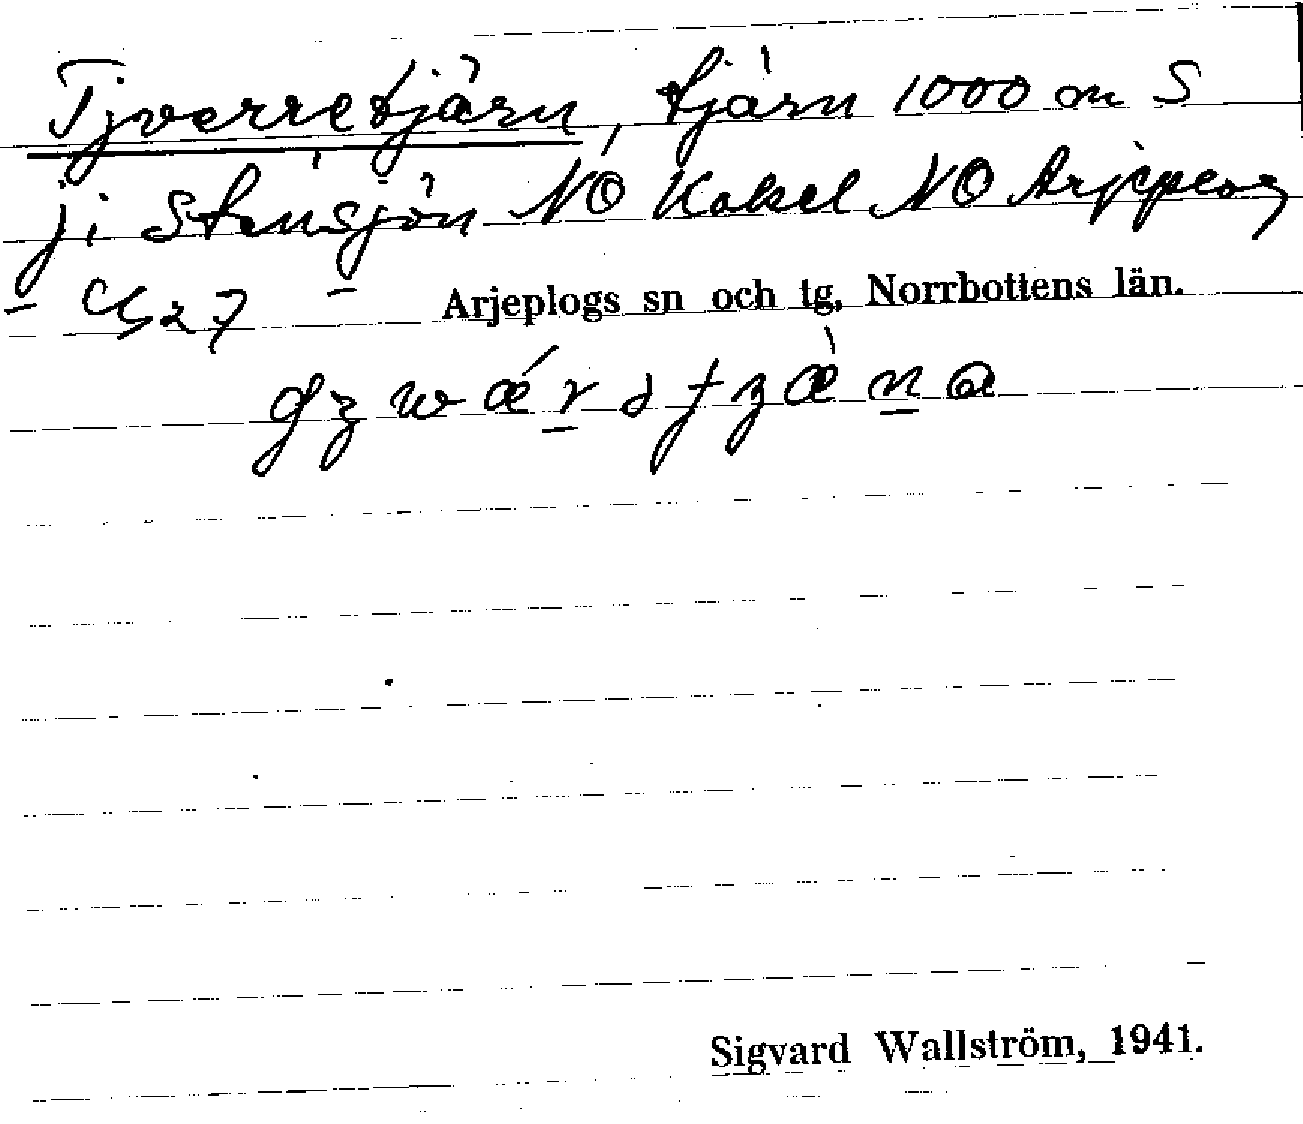 Tjverretjärn, tjärn 1000 m S
ji Stensjön NO Kakel NO Arjeplog
Arjeplogs sn och tg, Norrbottens län.
Sigvard Wallström, 1941.